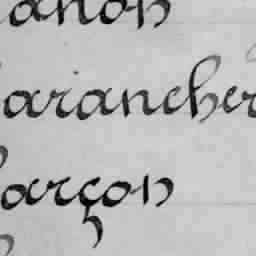 anon
arancher
arçon